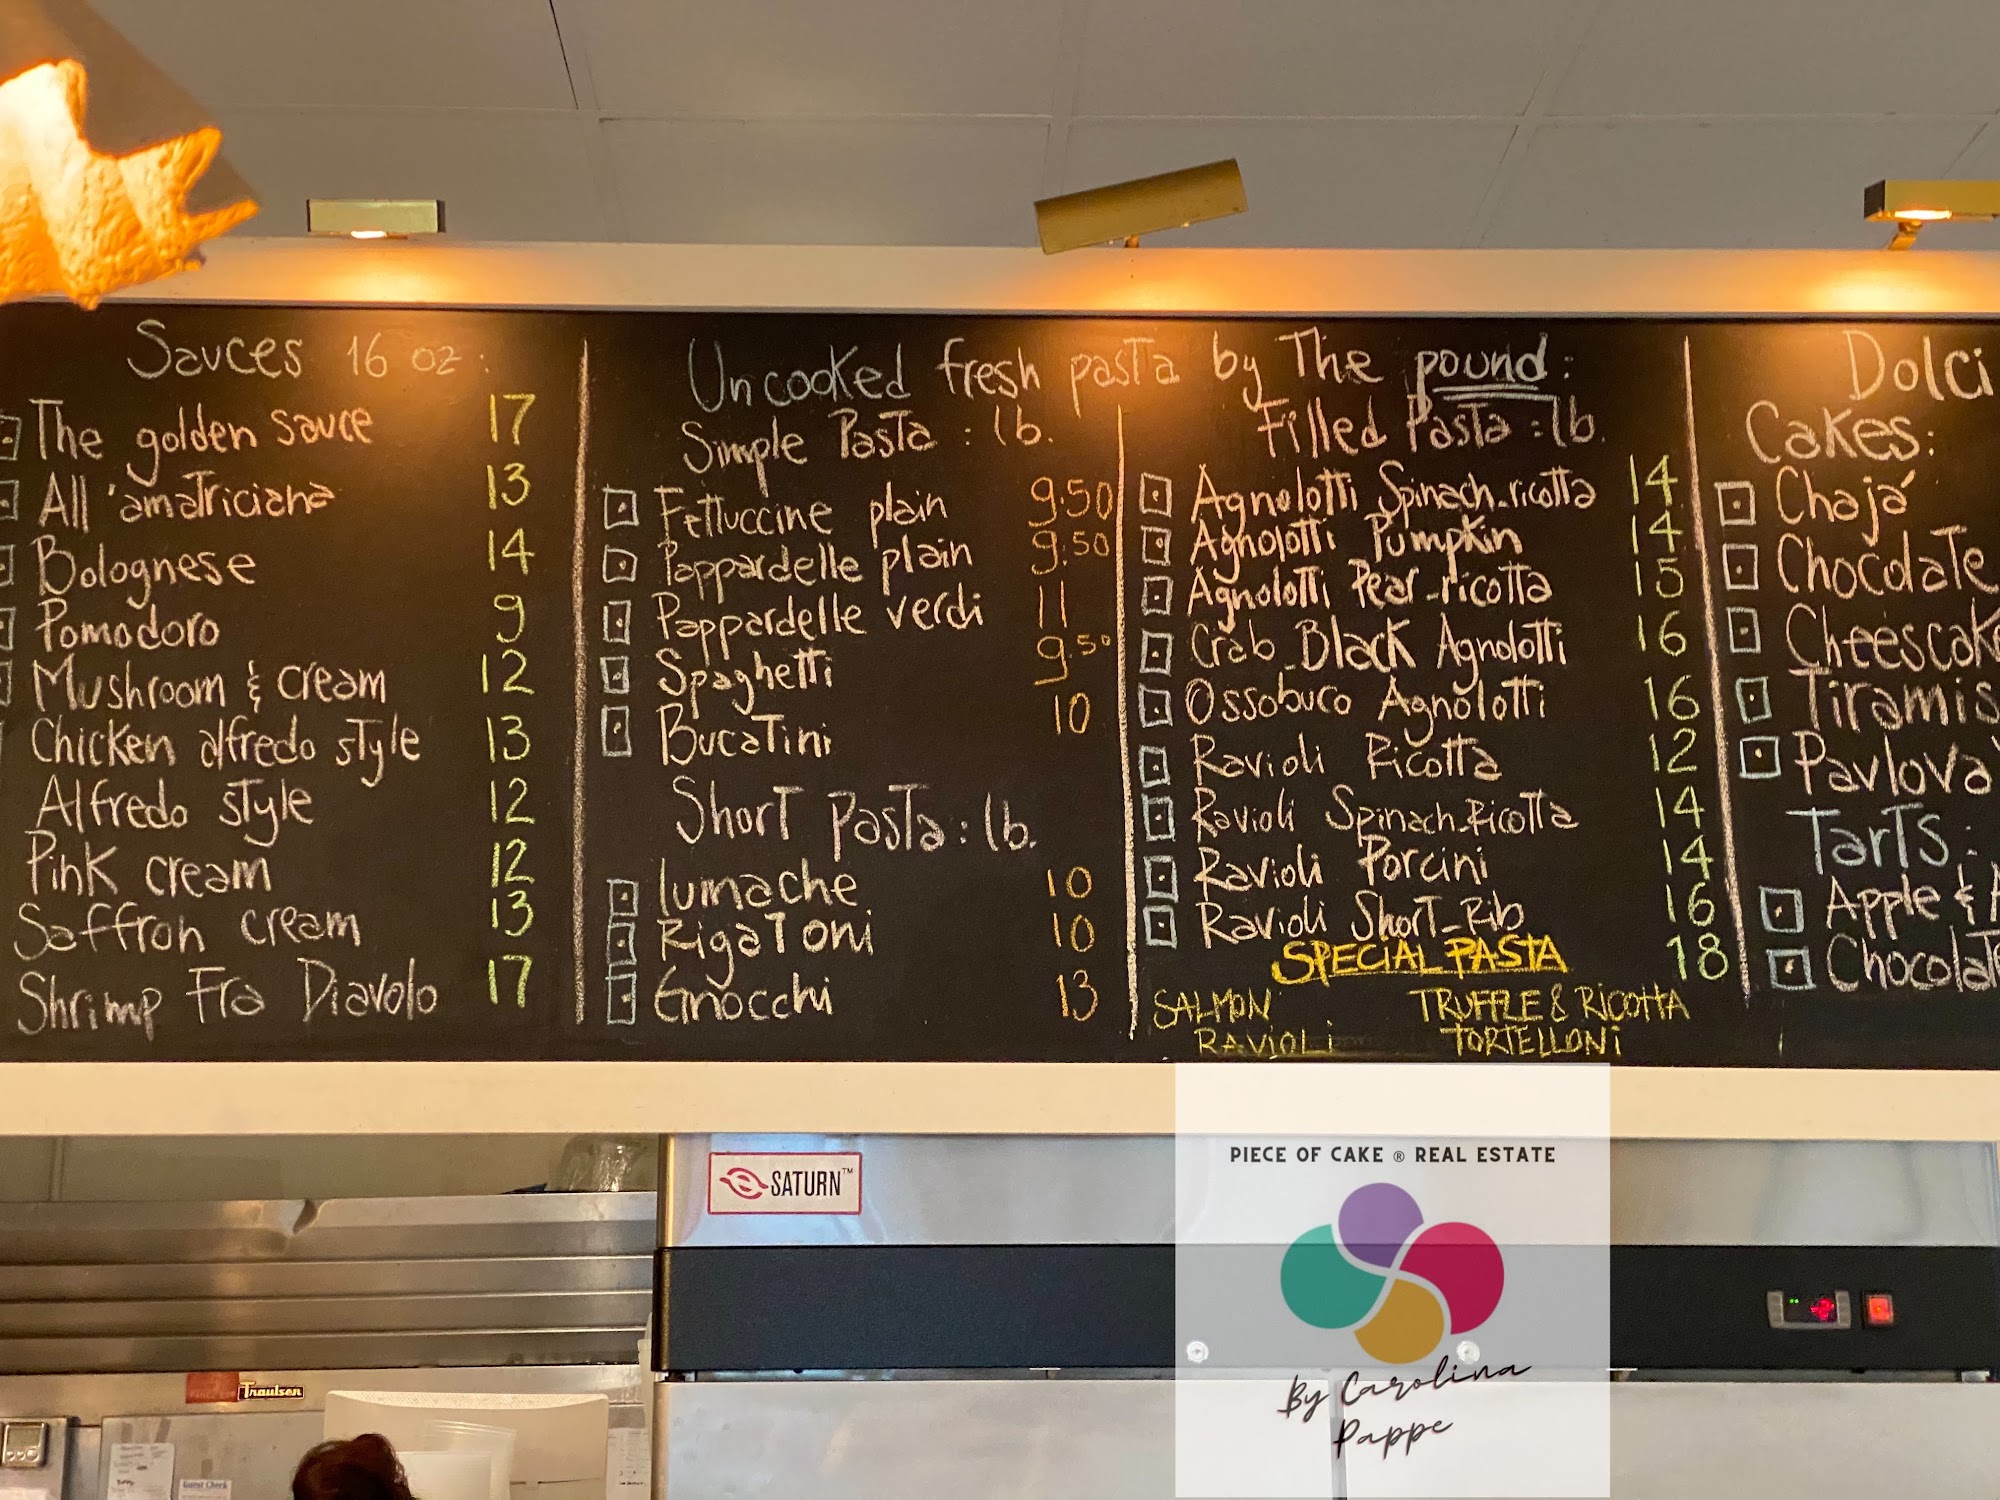 Sauces 16 oz:
The golden sauce 17
All'amatriciana 13
Bolognese 14
Pomodoro 9
Mushroom & cream 12
Chicken alfredo style 13
Alfredo style 12
Pink cream 12
Saffron cream 13
Shrimp Fra Diavolo 17
Uncooked fresh pasta by The pound:
Simple Pasta: lb.
Fettuccine plain 9.50
Pappardelle plain 9.50
Pappardelle verdi 11
Spaghetti 9.50
Bucatini 10
Short pasta: lb.
lumache 10
Rigatoni 10
Gnocchi 13
Filled Pasta: lb.
Agnolotti Spinach-ricotta 14
Agnolotti Pumpkin 14
Agnolotti Pear-ricotta 15
Crab-Black Agnolotti 16
Ossobuco Agnolotti 16
Ravioli Ricotta 12
Ravioli Spinach-Ricotta 14
Ravioli Porcini 14
Ravioli Short-Rib 16
SPECIAL PASTA 18
SALMON RAVIOLI
TRUFFLE & RICOTTA TORTELLONI
Dolci
Cakes:
Chajá
Chocolate
Cheescak
Tiramis
Pavlova
Tarts:
Apple & A
Chocolat
SATURN™
PIECE OF CAKE ® REAL ESTATE
By Carolina
Pappe
Traulsen
Guest Check